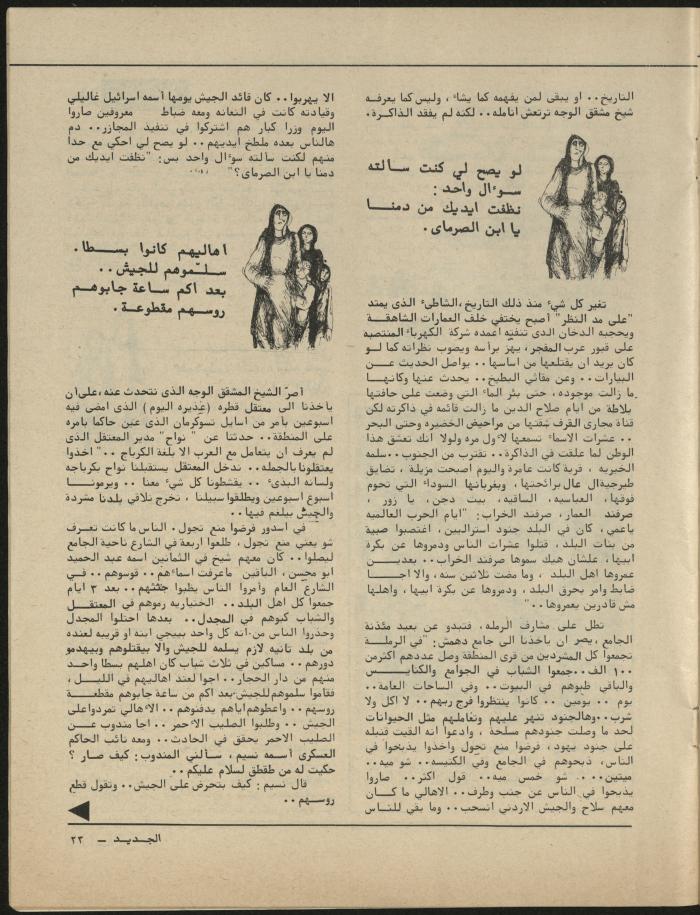 التاريخ.. او يبقى لمن يفهمه كما يشاء ، وليس كما يعرفه
شيخ مشقق الوجه ترتعش انامله.. لكنه لم يفقد الذاكرة.
لو يصح لي كنت سألته
سوءال واحد:
نظفت ايديك من دمنا
يا ابن الصرماي.
تغير كل شيء منذ ذلك التاريخ ،الشاطيء الذي يمتد
"على مد النظر" أصبح يختفي خلف العمارات الشاهقة
ويحجبه الدخان الذي تنفثه اعمده شركة الكهرباء المنتصبه
على قبور عرب المفجر، يهز برأسه ويصوب نظراته كما لو
كان يريد ان يقتلعها من اساسها.. يواصل الحديث عن
البيارات.. وعن مقاثي البطيخ.. يحدث عنها وكانها
ما زالت موجوده ، حتى بئر الماء التي وضعت على حافتها
بلاطة من ايام صلاح الدين ما زالت قائمه في ذاكرته لكن
قناة مجاري القرف شقتها من مراحيض الخضيره وحتى البحر
.. عشرات الاسماء تسمعها لاول مره ولولا انك تعشق هذا
الوطن لما علقت في الذاكرة.. تقترب من الجنوب..سلمه
الخيريه ، قرية كانت عامرة واليوم اصبحت مزبلة ، تضايق
طيرجية ال عال برائحتها ، وبغربانها السوداء التي تحوم
فوقها، العباسيه، الساقيه، بيت دجن، يا زور ،
صرفند العمار، صرفند الخراب: "ايام الحرب العالميه
ياعمي ، كان في البلد جنود استراليين، اغتصبوا صبية
من بنات البلد ، قتلوا عشرات الناس ودمروها عن بكرة
ابيها، علشان هيك سموها صرفند الخراب.. بعدين
عمروها اهل البلد ، وما مضت ثلاثين سنه، والا اجا
ضابط وامر بحرق البلد ، ودمروها عن بكرة ابيها ، واهلها
مش قادرين يعمروها.."
تطل على مشارف الرمله، فتبدو عن بعيد مئذنة
الجامع ،يصر ان ياخذنا الى جامع دهمش: "في الرملة
تجمعوا كل المشردين من قرى المنطقة وصل عددهم اكثرمن
١٠٠ الف..جمعوا الشباب في الجوامع والكنايس
والباقي ظبوهم في البيوت.. وفي الساحات العامة..
يوم .. يومين .. كانوا ينتظروا فرج ربهم.. لا اكل ولا
شرب..وهالجنود تنهر عليهم وتعاملهم مثل الحيوانات
لحد ما وصلت جنودهم مسلحة ، وادعوا انه القيت قنبله
على جنود يهود، فرضوا منع تجول واخذوا يذبحوا في
الناس، ذبحوهم في الجامع وفي الكنيسه.. شو ميه..
ميتين... شو خمس ميه.. قول اكثر.. صاروا
يذبحوا في الناس عن جنب وطرف.. الاهالي ما كان
معهم سلاح والجيش الاردني انسحب.. وما بقي للناس
الا يهربوا.. كان قائد الجيش يومها أسمه اسرائيل غاليلي
وقيادته كانت في النعانه ومعه ضباط معروفين صاروا
اليوم وزرا كبار هم اشتركوا في تنفيذ المجازر.. دم
هالناس بعده ملطخ ايديهم.. لو يصح لي احكي مع حدا
منهم لكنت سألته سوءال واحد بس: "نظفت ايديك من
دمنا يا ابن الصرماي؟"
اهاليهم كانوا بسطا.
سلّموهم للجيش..
بعد اكم ساعة جابوهم
روسهم مقطوعة.
أصرّ الشيخ المشقق الوجه الذي نتحدث عنه ،على أن
يأخذنا الى معتقل قطره (غديره اليوم) الذي امضى فيه
اسبوعين بامر من اسايل تسوكرمان الذي عين حاكما بامره
على المنطقة.. حدثنا عن " نواح" مدير المعتقل الذي
لم يعرف ان يتعامل مع العرب الا بلغة الكرباج .." اخذوا
يعتقلونا بالجمله.. ندخل المعتقل يستقبلنا نواح بكرباجه
ولسانه البذيء .. يقشطونا كل شيء معنا .. ويرمونا
اسبوع اسبوعين ويطلقوا سبيلنا ، نخرج نلاقي بلدنا مشردة
والجيش بيلغم فيها..
في اسدور فرضوا منع تجول. الناس ما كانت تعرف
شو يعني منع تجول ، طلعوا اربعة في الشارع ناحية الجامع
ليصلوا.. كان معهم شيخ في الثمانين اسمه عبد الحميد
ابو محسن، الباقين ماعرفت اسماءهم.. قوسوهم .. في
الشارع العام وامروا الناس يظبوا جثثهم.. بعد ٣ ايام
جمعوا كل اهل البلد.. الختياريه رموهم في المعتقل
والشباب كبوهم في المجدل.. بعدها احتلوا المجدل
وحذروا الناس من.انه كل واحد بييجي ابنه او قريبه لعنده
من بلد ثانيه لازم يسلمه للجيش والا بيقتلوهم وبيهدمو
دورهم.. مساكين في ثلاث شباب كان اهلهم بسطا واحد
منهم من دار الحجار..اجوا لعند اهاليهم في الليل ،
فقاموا سلموهم للجيش-بعد اكم من ساعة جابوهم مقطعة
روسهم.. واعطوهم اياهم يدفنوهم.. الاهالي تمردواعلى
الجيش .. وطلبوا الصليب الاحمر.. اجا مندوب عن
الصليب الاحمر يحقق في الحادث.. ومعه نائب الحاكم
العسكري أسمه نسيم، سألني المندوب: كيف صار ؟
حكيت له من طقطق لسلام عليكم..
قال نسيم: كيف بتحرض على الجيش.. وتقول قطع
روسهم..
الجديد – ٢٣